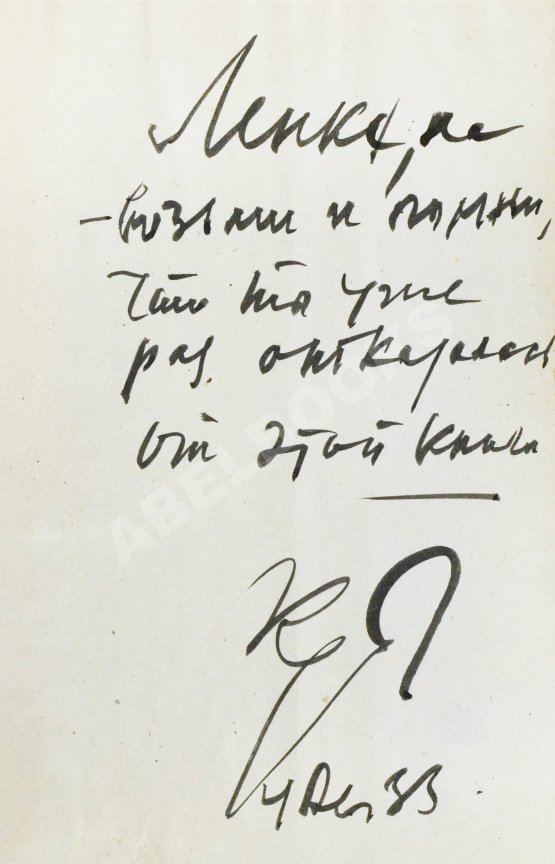 Ленка, на
– возьми и помни,
что ты уже
раз отказалась
от этой книги
ABELBOOKS